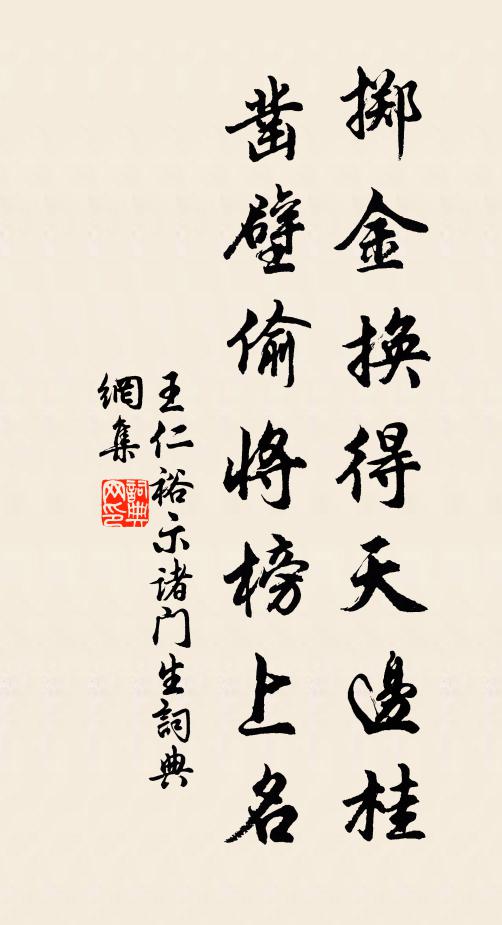 掷金换得天邊桂
凿壁偷將榜上名
王仁裕示諸門生詞典
網集
詞典
网印